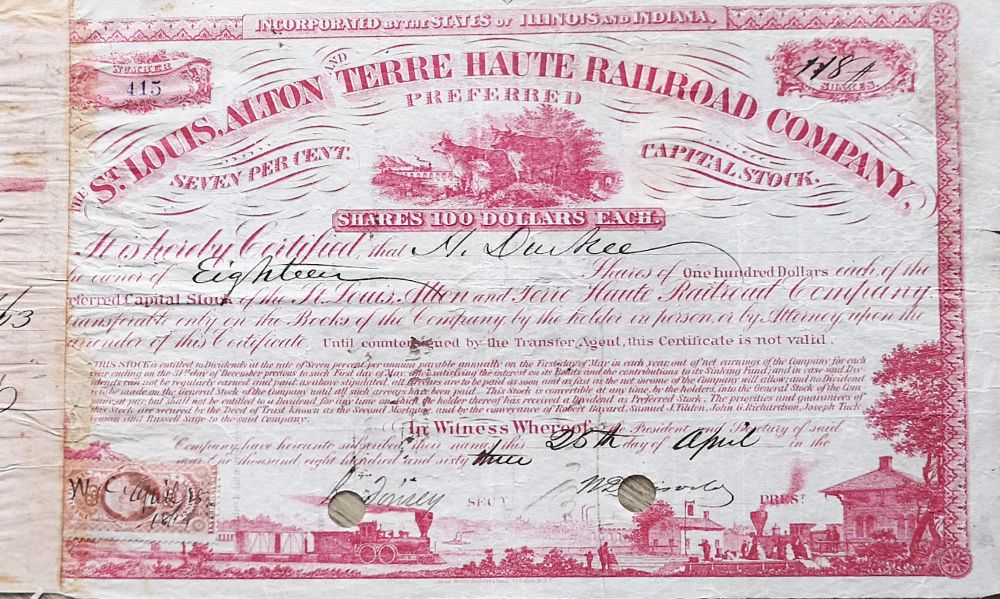 INCORPORATED BY THE STATES OF ILLINOIS AND INDIANA.
NUMBER
415
SHARES.
THE ST. LOUIS, ALTON AND TERRE HAUTE RAILROAD COMPANY,
PREFERRED
SEVEN PER CENT.
CAPITAL STOCK.
SHARES 100 DOLLARS EACH.
It is hereby Certified, that H. Durkee
owner of Eighteen Shares of One hundred Dollars each, of the
Capital Stock of the St. Louis, Alton and Terre Haute Railroad Company
only on the Books of the Company by the holder in person, or by Attorney, upon the
of this Certificate. Until countersigned by the Transfer Agent, this Certificate is not valid.
THIS STOCK is entitled to Dividends at the rate of Seven per cent per annum payable annually on the First day of May in each year, out of net earnings of the Company for each
ending on the 31st day of December previous to such First day of May, after satisfying the interest on its Bonds and the contributions to its Sinking Fund; and in case said
can not be regularly earned and paid, as above stipulated, all arrears are to be paid as soon and as fast as the net income of the Company will allow; and no Dividend
to be made on the General Stock of the Company until all such arrears have been paid. This Stock is convertible at any time, by the holders, into the General Stock of the
at par; but shall not be entitled to a Dividend for any time on which the holder thereof has received a Dividend as Preferred Stock. The priorities and guarantees of
this Stock, are secured by the Deed of Trust Known as the Second Mortgage, and by the conveyance of Robert Bayard, Samuel J. Tilden, John G. Richardson, Joseph
and Russell Sage to the said Company.
In Witness Whereof, President and Secretary of said
Company, have hereunto subscribed their names this 25th day of April in the
one thousand, eight hundred and sixty three
SECY
PREST